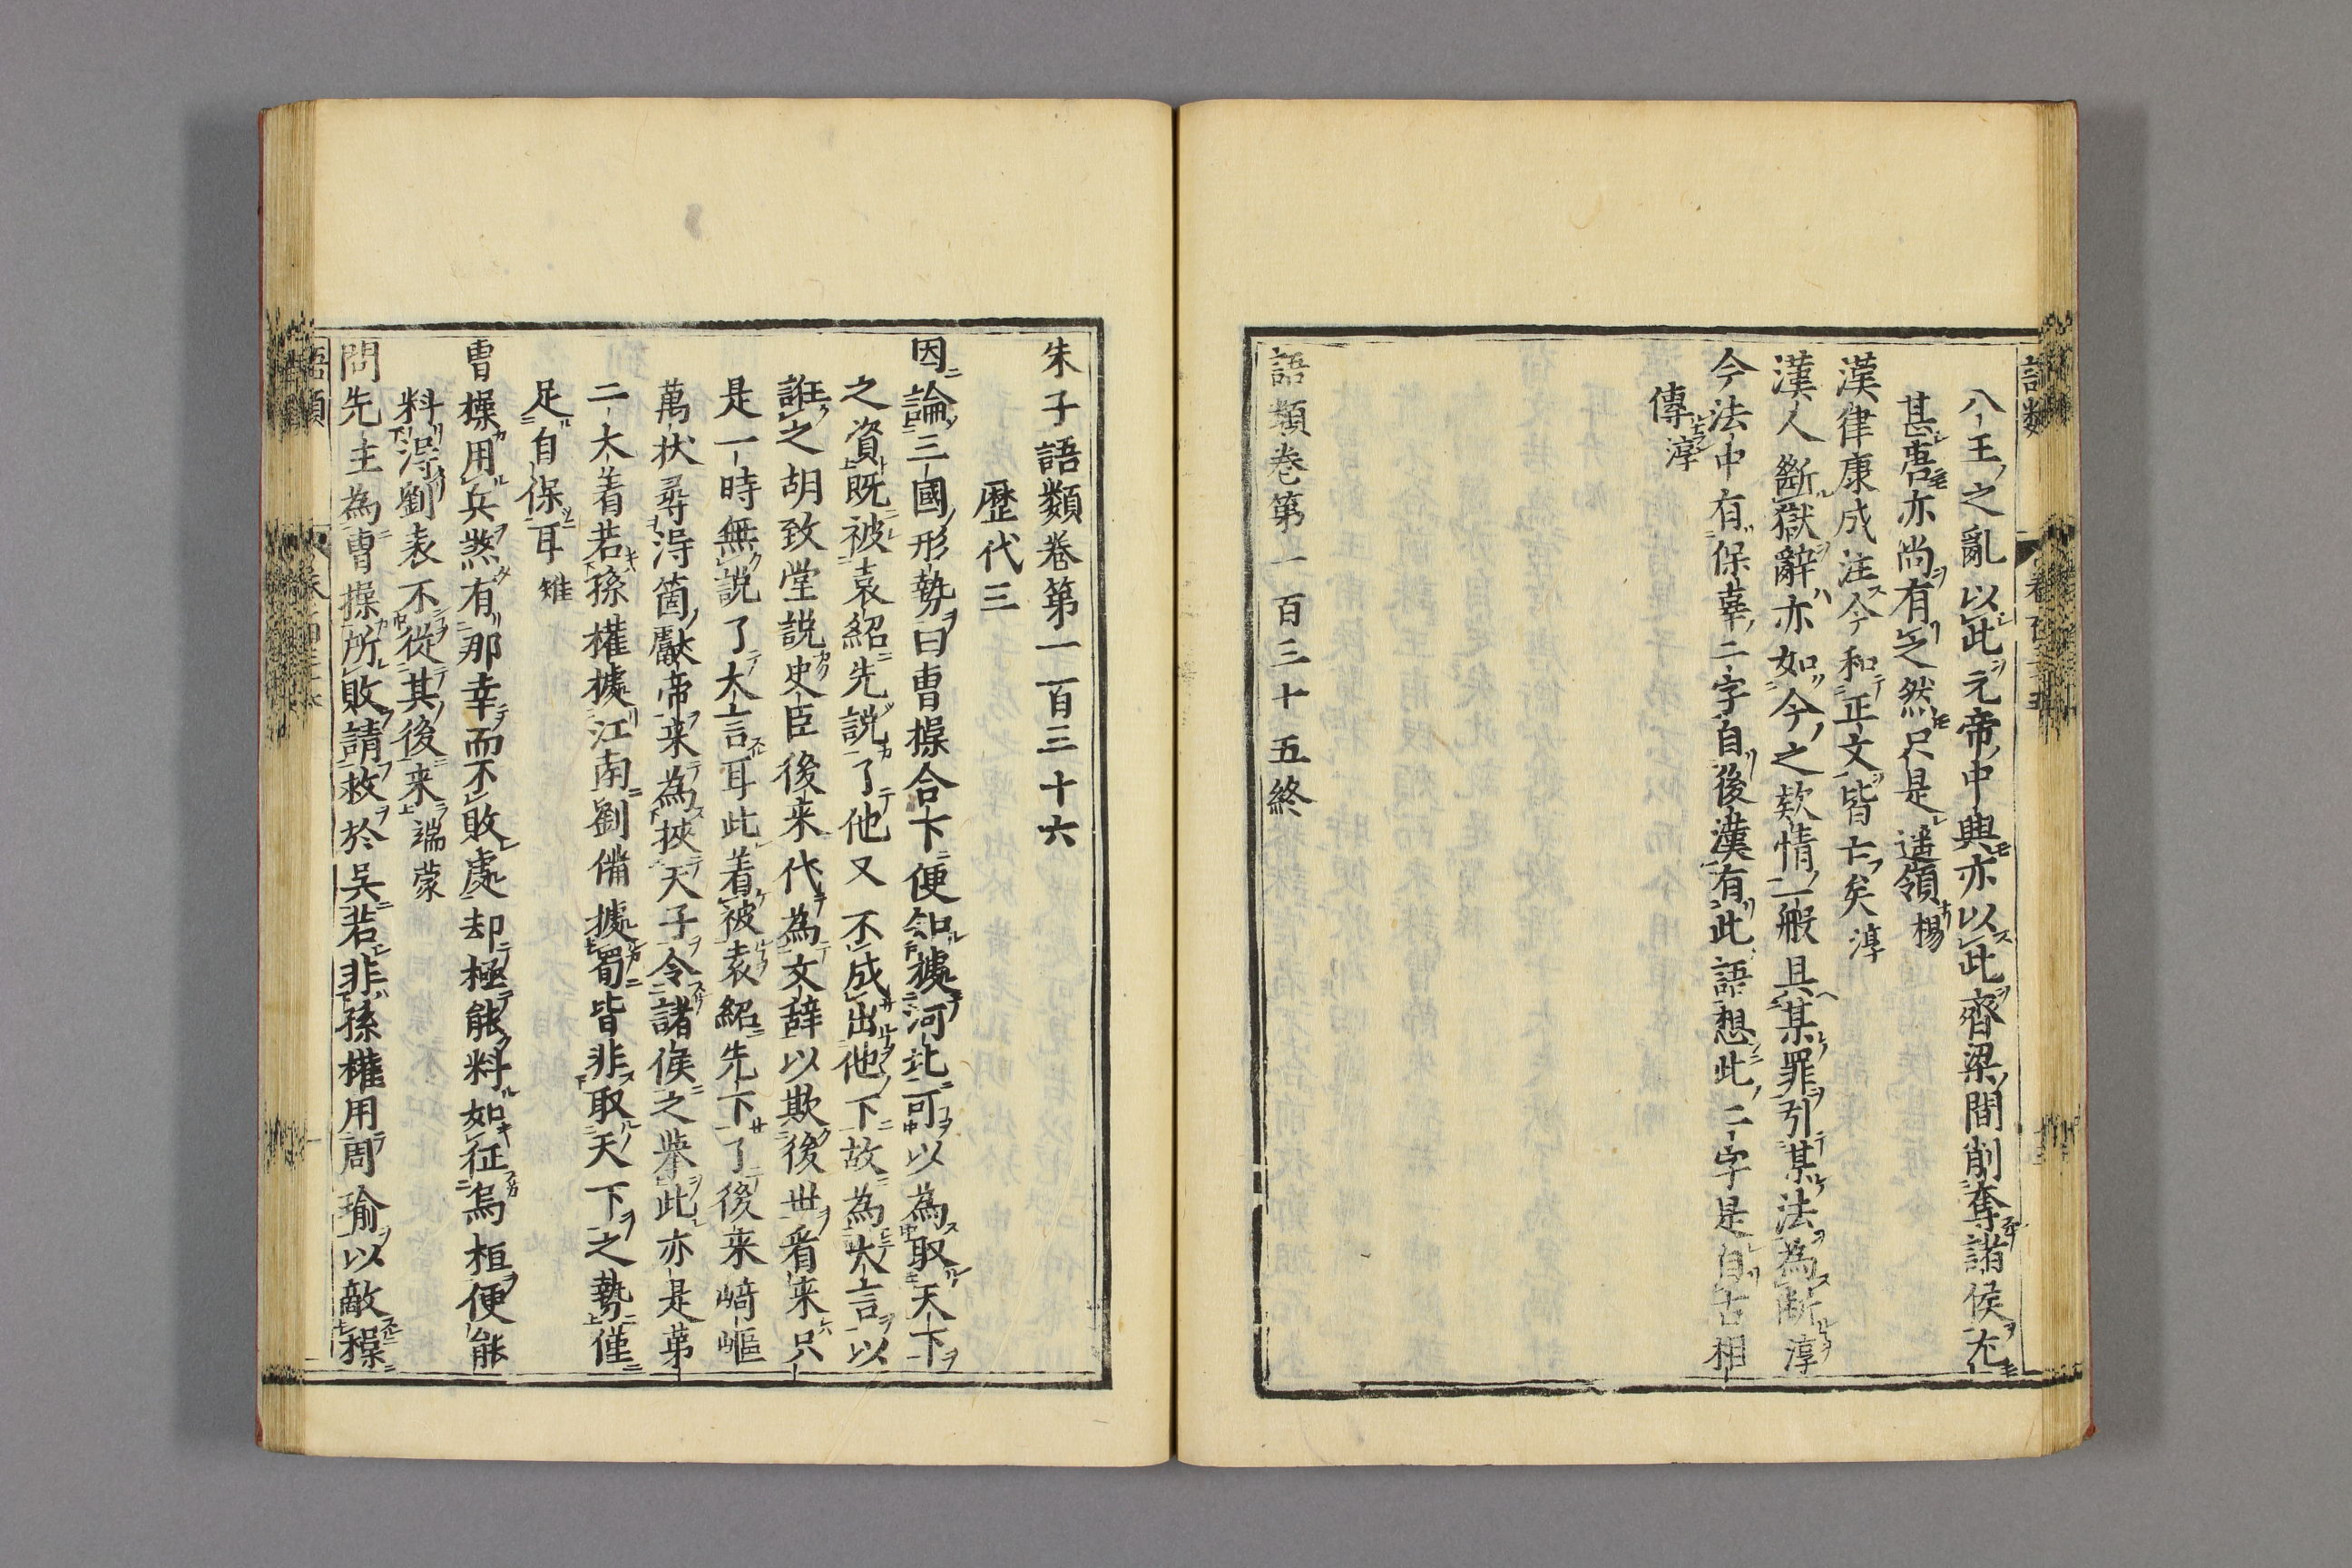 八王之亂以此元帝中興亦以此齊梁間削奪諸侯尤
甚唐亦尚有之然只是遥領楊
漢律康成注今和正文皆亡矣淳
漢人斷獄辭亦如今之欵情一般具某罪引某法為断淳
今法中有保辜二字自後漢有此語想此二字是自古相
傳淳
語類卷第一百三十五終
朱子語類卷第一百三十六
歷代三
因論三國形勢曰曹操合下便知據河北可以為取天下
之資既被袁紹先説了他又不成出他下故為大言以
誑之胡致堂説史臣後来代為文辭以欺後世看来只
是一時無説了大言耳此着被袁紹先下了後来崎嶇
萬状尋淂箇獻帝来為挾天子令諸侯之举此亦是第
二大着若孫權據江南劉備據蜀皆非取天下之勢僅
足自保耳雉
曹操用兵煞有那幸而不敗處却極能料如征烏桓便能
料淂劉表不從其後来端蒙
問先主為曹操所敗請救於吴若非孫權用周瑜以敵操